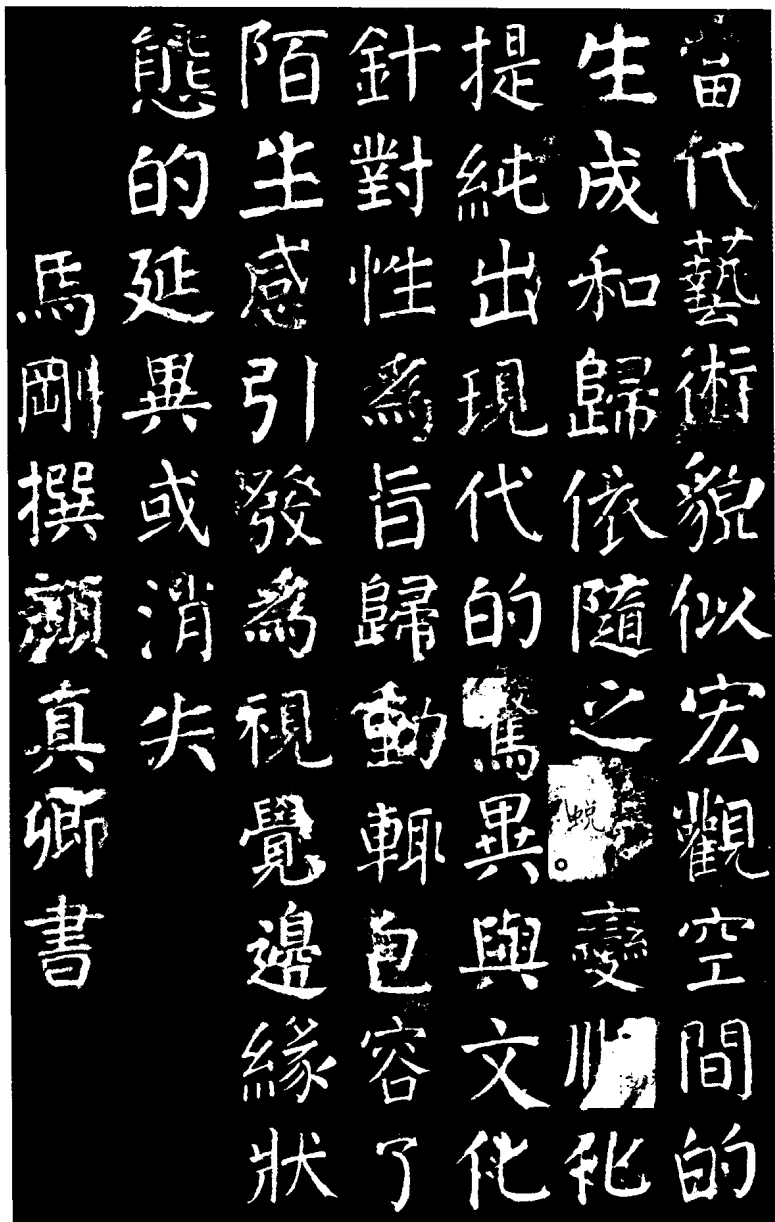 當代藝術貌似宏觀空間的
生成和歸依隨之蛻變
提純出現代的驚異與文化
針對性爲旨歸動輒包容了
陌生感引發爲視覺邊緣狀
態的延異或消失
馬剛撰顏真卿書